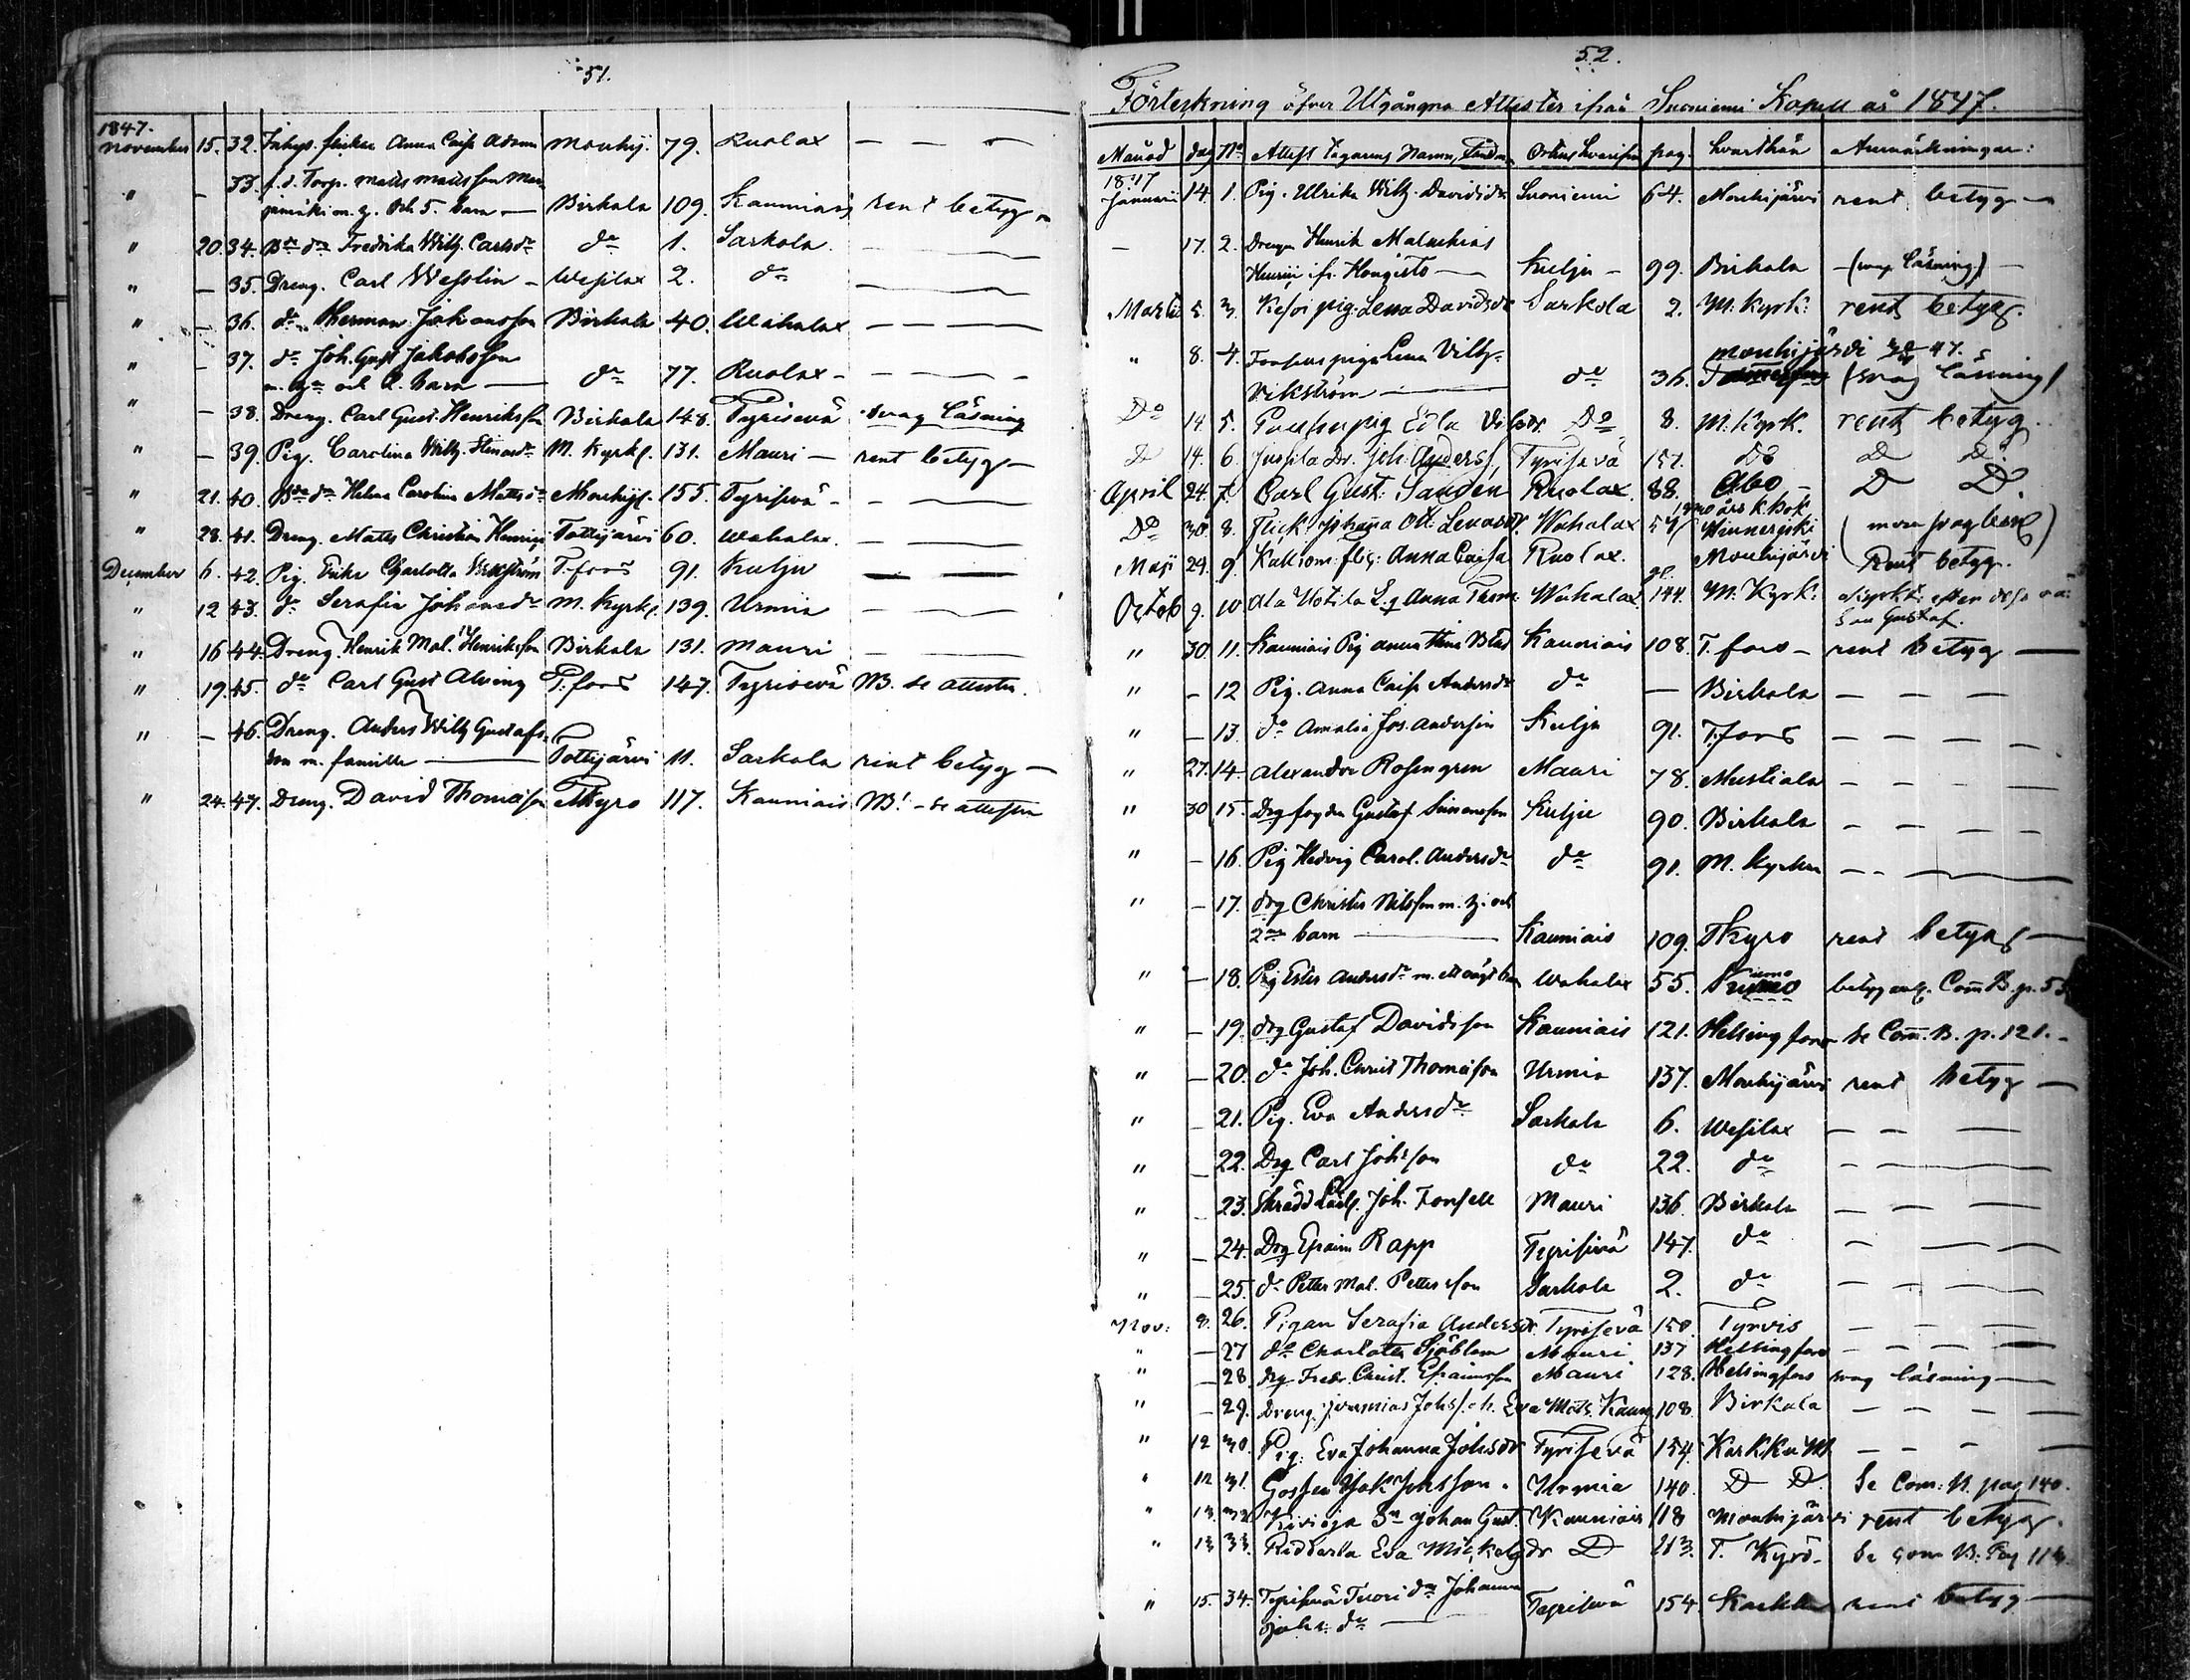 51.
1847.
November 15. 32. Inhys. flickan Anna Caisa Adam Mouhij. 79. Ruolax — — —
" — 33. f. d. Torp. Matts Mattsson
m. h. och 5. barn — Birkala 109. Kauniais rent betyg —
" 20. 34. Fredrika Wilh. Carlsdr do 1. Sarkola — —
" — 35. Dreng. Carl Wesslin — Wesilax 2. do — —
" — 36. do Herman Johansson Birkala 40. Wahalax — — —
" — 37. do Joh. Gust. Jakobsson
och 2. barn — do 77. Ruolax — — —
" — 38. Dreng. Carl Gust. Henriksson Birkala 148. Tyrisevä svag läsning
" — 39. Pig. Carolina Wilh. M. Kyrk. 131. Mauri — rent betyg —
" 21. 40. Helena Carolina Mattsdr Mouhij. 155. Tyrisevä — — —
" 28. 41. Dreng. Matts Christian Tottijärvi 60. Wahalax. — —
December 6. 42. Pig. Erika Charlotta T.fors 91. Kulju — — —
" 12 43. do Serafia Johansdr M. Kyrk. 139. Urmia — — —
" 16 44. Dreng Henrik Mal. Henriksson Birkala 131. Mauri — —
" 19. 45. do Carl Gust Alving T.fors 147. Tyrisevä NB. se attesten.
" — 46. Dreng. Anders Wilh Gustafs-
son m. famille — Tottijärvi 11. Sarkola rent betyg —
" 24. 47. Dreng. David Thomasson Tkyro 117. Kauniais NB! — se attesten
52.
Förteckning öfver Utgångna Attester ifrån Suoniemi Kapell år 1847.
Månad dag No Attest tagarens Namn, Orten hvarifrån pag. hvarthän Anmärkningar:
1847
Januarii 14. 1. Pig. Ulrika Wilh. Davidsdr Suoniemi 64. Mouhijärvi rent betyg —
— 17. 2. Drengen Henrik Malachias
Henrici fr. Hongisto — Kulju — 99. Birkala — (svag läsning) —
Martii 5. 3. pig. Lena Davidsdr Sarkola 2. M. Kyrk: rent betyg.
" 8. 4. piga Lena Vilh. Mouhijärvi 47.
Vikström — do 36. (svag läsning)
Do 14. 5. pig Edla Do 8. M. Kyrk. rent betyg.
D 14. 6. Jussila Dr. Joh. Anders. Tyrisevä 151. do D D
April 24. 7. Carl Gust: Sanden Ruolax. 88. Åbo — D D.
Do 30. 8. Flick. Johana Ott: Wahalax 57
Maji 29. 9. flic: Anna Caisa Ruolax. Mouhijärvi Rent betyg.
Octob 9. 10 Ala Uotila Anna Thom Wahalax 144. M. Kyrk: efter
son Gustaf.
" 30. 11. Kauniais Pig Anna Stina Kauniais 108. T.fors — rent betyg —
" — 12 Pig. Anna Caisa Andersdr do — Birkala — — —
" — 13. do Amalia Jos. Andersin Kulju 91. T.fors — — — —
" 27. 14. Alexander Rosengren Mauri 78. Mustiala — — — —
" 30 15. Drg Gustaf Simonsson Kulju 90. Birkala — — — —
" — 16. Pig Hedvig Carol. Andersdr do 91. M. Kyrkan — — —
" — 17. drg Christer Nilsson m. h. och
2ne barn — Kauniais 109. Tkyro rent betyg —
" — 18. Pig Ester Andersdr m. Wahalax 55. betyg Com B. p. 55
" — 19. drg Gustaf Davidsson Kauniais 121. Helsingfors — se Com. B. p. 121. —
" — 20. do Joh. Christ Thomasson Urmia 137. Mouhijärvi rent betyg —
" — 21. Pig. Eva Andersdr Sarkola 6. Wesilax — — —
" — 22. Drg Carl Johsson do 22. do — —
" — 23. Skrädd Joh. Forsell Mauri 136. Birkala — — —
" — 24. Drg Efraim Rapp Tyrisevä 147. do — — —
" — 25. do Petter Mal. Pettersson Sarkola 2. do — — —
Nov: 8. 26. Pigan Serafia Andersdr. Tyrisevä 150. Tyrvis — — —
" — 27 do Charlotta Sjöblom Mauri 137 Helsingfors — — — —
" — 28. drg Fredr. Christ. Efraimsson Mauri 128. Helsingfors svag läsning —
" — 29. Dreng. Jeremias Johss. o. h. Eva Matts. Kaun. 108. Birkala — — — —
" 12 30. Pig: Eva Johanna Johsdr Tyrisevä 154. Karkku — — — —
" 12 31. Gossen Isak Johsson. Urmia 140. D D. Se Com: B. pag 140.
" 13. 32 Kivioja Johan Gust. Kauniais 118 Mouhijärvi rent betyg.
" 13 33. Eva Mickelsdr D 113. T. Kyro — Se Com B: Pag 113.
" 15. 34. Tyrisevä Tuori Johanna
Johs. dr — Tyrisevä 154. Karkku rent betyg —